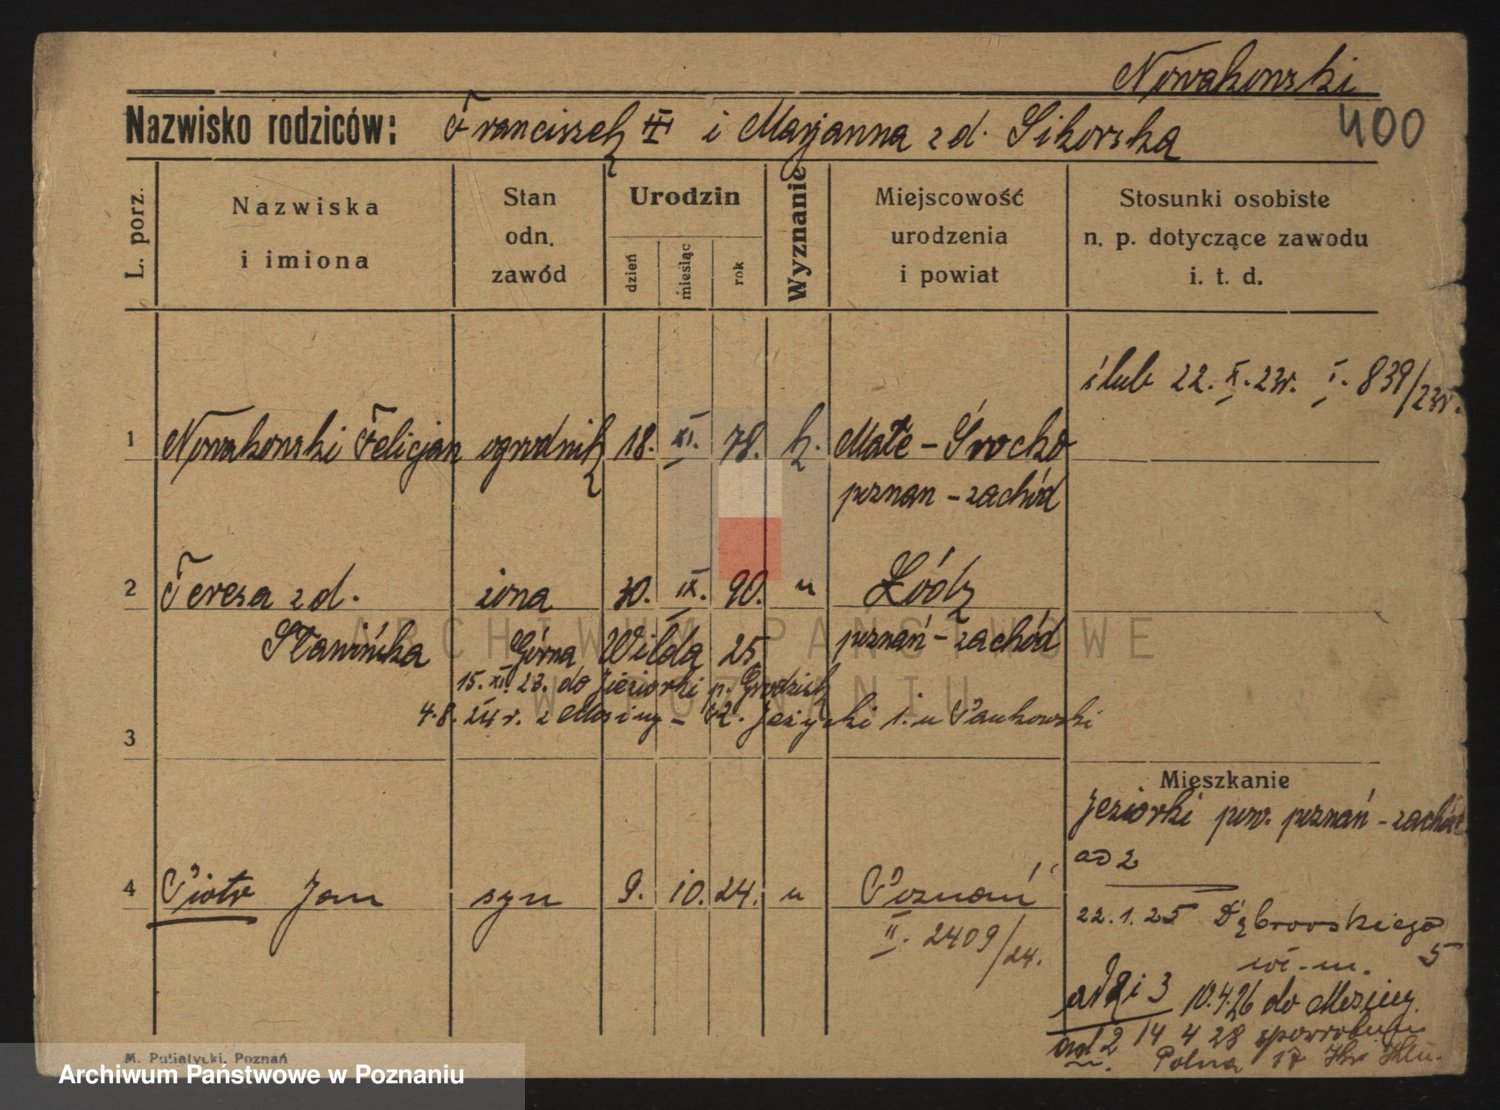 Nowakowski
Nazwisko rodziców: Franciszek i Marjanna z d. Sikorska
400
L. porz.
Nazwiska i imiona
Stan odn. zawód
Urodzin
dzień
miesiąc
rok
Wyznanie
Miejscowość urodzenia i powiat
Stosunki osobiste n. p. dotyczące zawodu i. t. d.
ślub 22. X. 23r. I. 839/23r.
1 Nowakowski Felicjan ogrodnik 18. XI. 78. k. Małe-Srocko
poznan-zachód
2 Teresa z d. żona 30. IX. 90. u Łódz
Sławińska Górna Wilda 25 poznań-zachód
15. XI. 23. do Jeziorki p. Grodzisk
4.8. 24r. z Mosiny - Jeżycki i. u
3
Mieszkanie
Jeziorki pow. poznań-zachód
ad 2
4 Piotr Jan syn 9. 10. 24. u Poznań
II. 2409/24.
22.1.25 Dąbrowskiego 5
10.4.26 do Mosiny
ad 2 14 4 28
Polna 17
M. Putiatycki, Poznań
ARCHIWUM PAŃSTWOWE
W POZNANIU
Archiwum Państwowe w Poznaniu